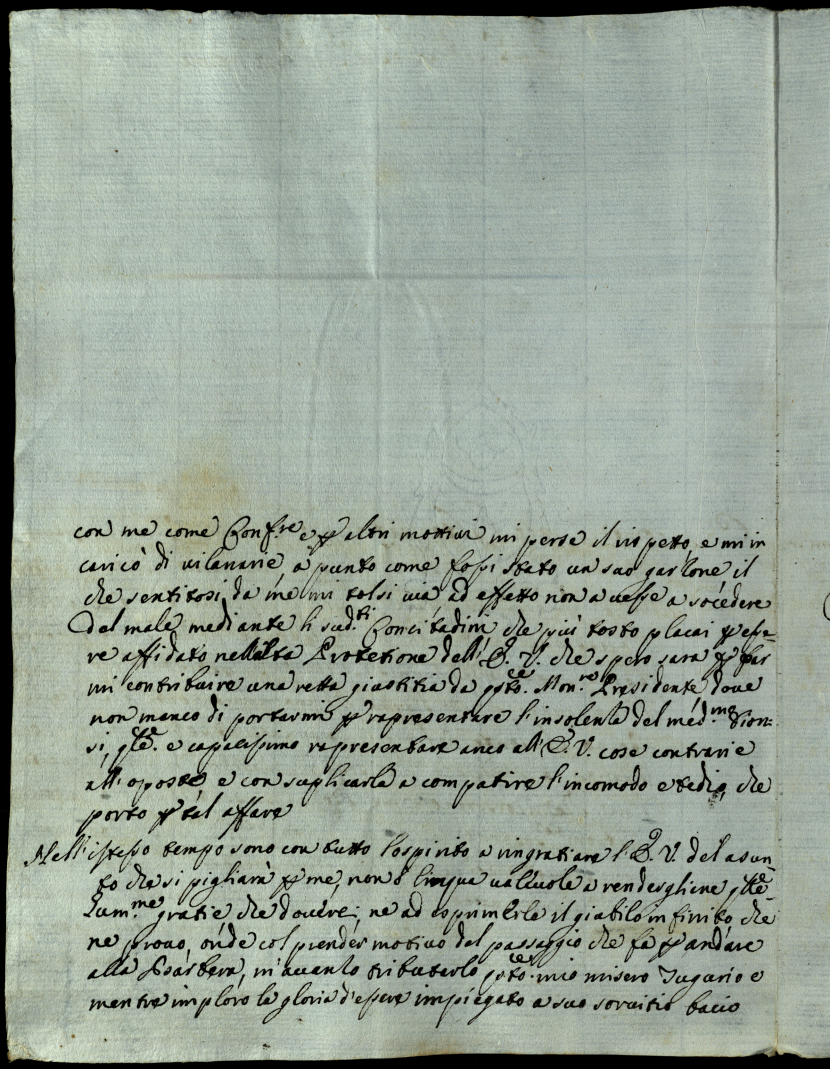 con me come Conf.re e p altri mottivi mi perse il rispetto, e mi in
caricò di vilanarie à punto come fossi stato un suo garzone il
che sentitosi da me mi tolsi via ad effetto non avesse a socedere
del male mediante li sud.ti Concitadini che più tosto placai p esse
re affidato nell'alta Protetione dell' E. V. che spero sara p far
mi contribuire una retta giustitia da q.sto Mon.re Presidente dove
non manco di portarmi p rapresentare l'insolenza del med.mo
si, q.le e capacissimo rapresentare anco all' E. V. cose contrarie
all'oposto e con suplicarla a compatire l'incomodo e tedio, che
porto p tal affare
Nell'istesso tempo sono con tutto lo spirito a ringratiare l' E. V. del asun
to che si pigliarà p me, non ò lingua valevole a rendergliene q.lle
gratie che doverei, ne ad esprimerle il giubilo infinito che
ne provo, onde col prender motivo del passaggio che fà p andare
alla m'avanzo tributarlo q.sto mio misero e
mentre imploro la gloria d'essere impiegato a suo servitio bacio